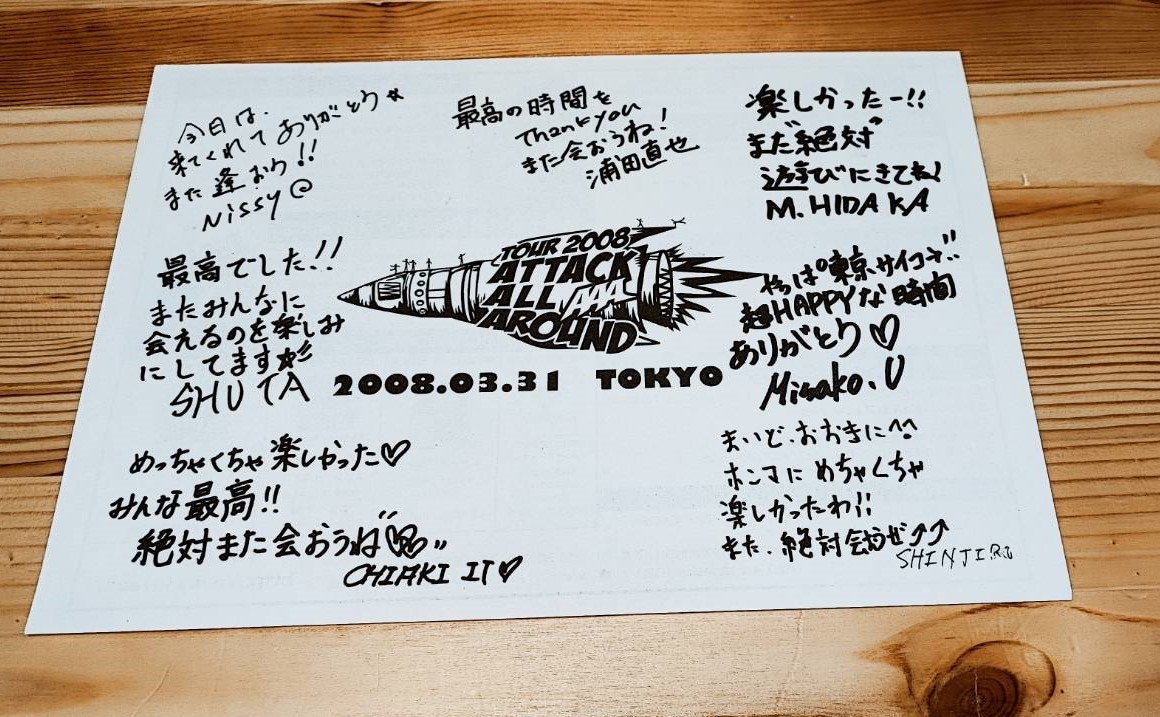 今日は、
来てくれてありがとう☆
また逢おう!!
Nissy
最高の時間を
Thank you
また会おうね!
浦田直也
楽しかったー!!
また絶対
遊びにきてね!
M.HIDAKA
最高でした!!
またみんなに
会えるのを楽しみ
にしてます☆
SHUTA
TOUR 2008
ATTACK
ALL AAA
AROUND
2008.03.31 TOKYO
やっぱ東京サイコー!!
超HAPPYな時間
ありがとう♡
Misako.U
めっちゃくちゃ楽しかった♡
みんな最高!!
絶対また会おうね
CHIAKI IT♡
まいど、おおきに^^
ホンマにめちゃくちゃ
楽しかったわ!!
また、絶対会おぜ↑↑
SHINJIRO